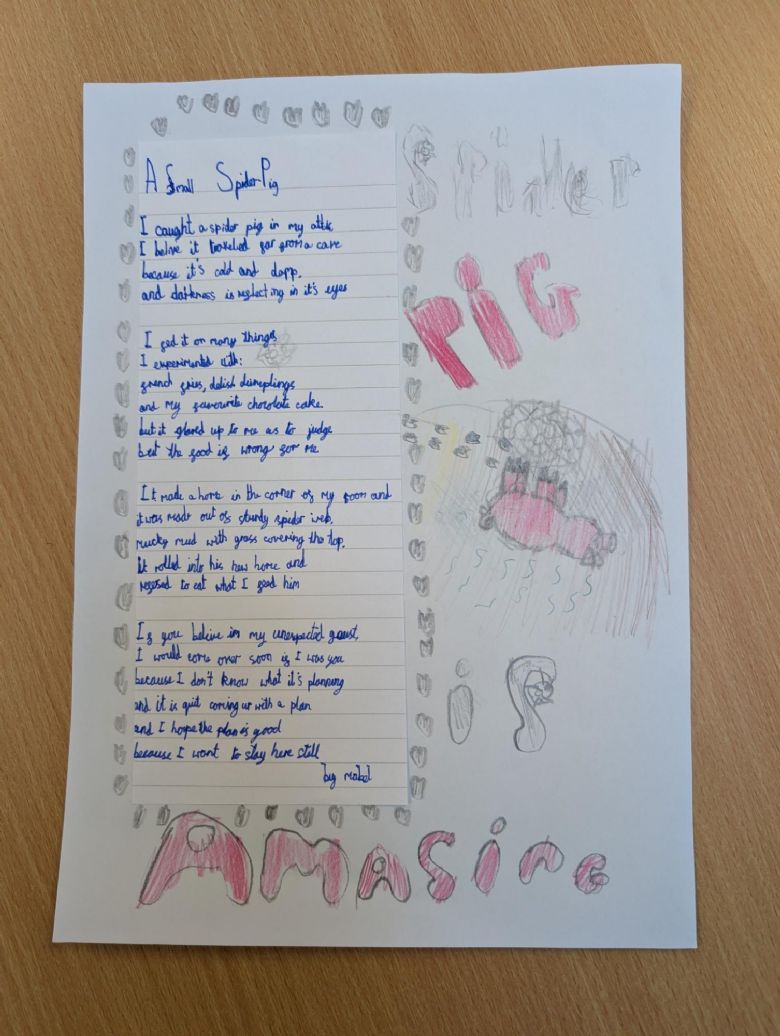 A Small SpiderPig
I caught a spider pig in my attic
I belive it traveled far from a cave
because it's cold and dapp.
and darkness is reflecting in it's eyes
I fed it on many things
I experimented with:
french fries, delish dumplings
and my favourite chocolate cake.
but it glared up to me as to judge
but the food is wrong for me
It made a home in the corner of my room and
it was made out of sturdy spider web.
mucky mud with grass covering the top.
it rolled into his new home and
refused to eat what I feed him
If you beleive in my unexpected guest,
I would come over soon if I was you
because I don't know what it's planning
and it is quit coming up with a plan
and I hope the plan is good
because I want to stay here still
by mabel
Spider
PiG
is
AMASing